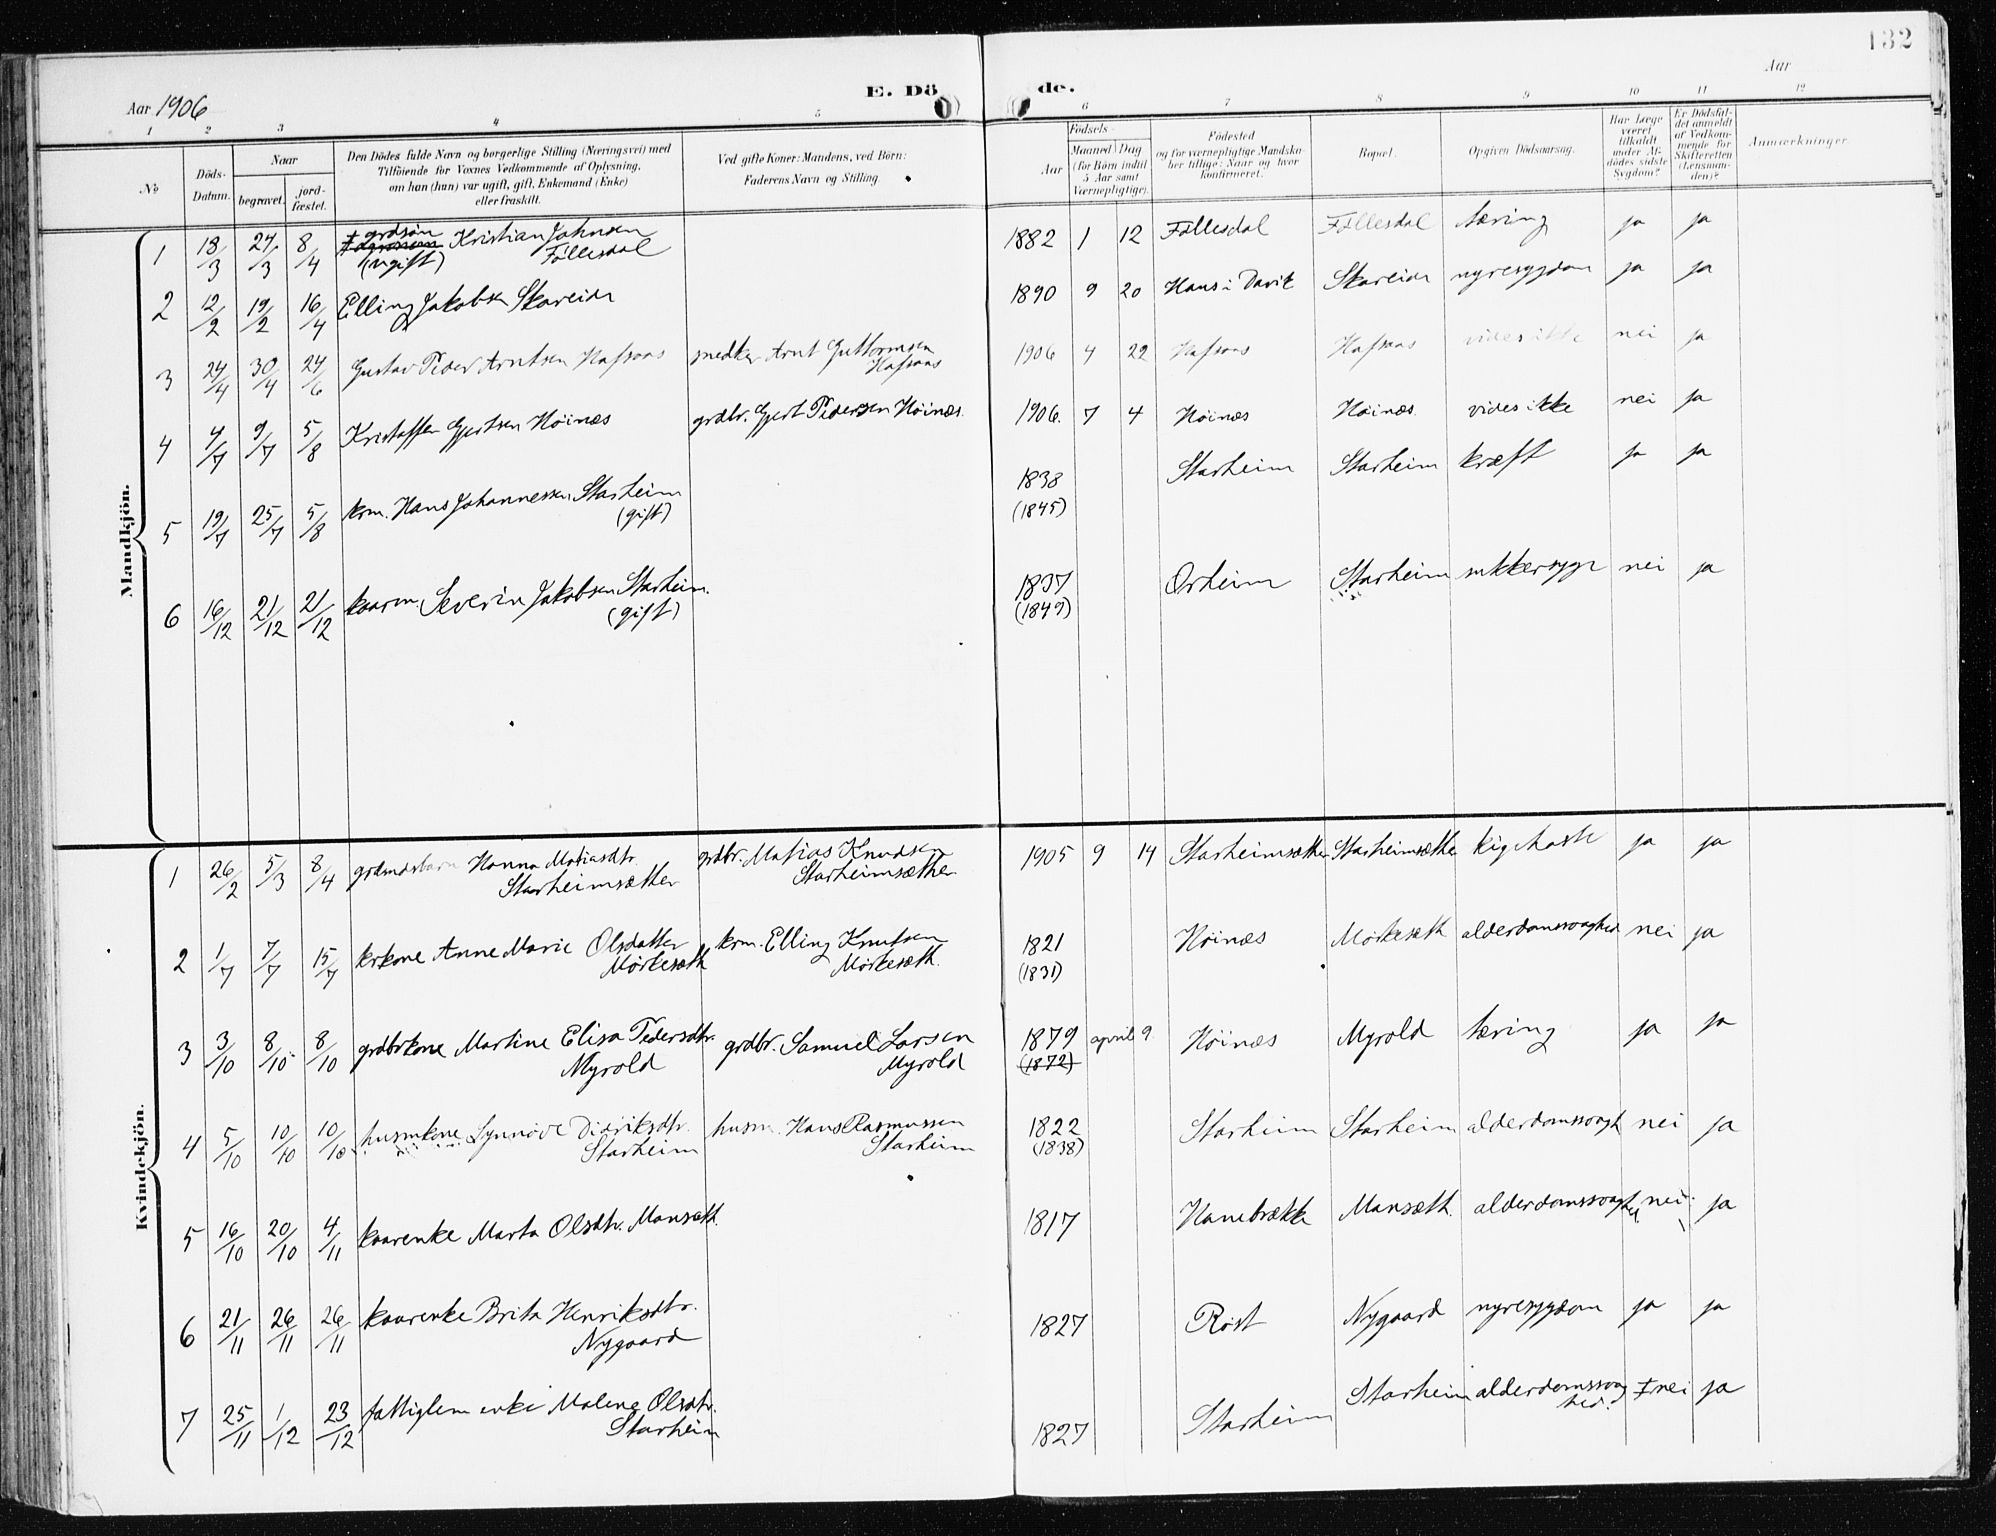 132
Aar 1906
E. Dö de.
Aar
1 2 3 4 5 6 7 8 9 10 11 12
No
Döds-Datum.
Naar
begravet.
jord-fæstet.
Den Dödes fulde Navn og borgerlige Stilling (Næringsvei) med
Tilföiende for Voxnes Vedkommende af Oplysning,
om han (hun) var ugift, gift, Enkemand (Enke)
eller fraskilt.
Ved gifte Koner: Mandens, ved Börn:
Faderens Navn og Stilling.
Födsels-
Aar
Maaned Dag
(for Börn indtil
5 Aar samt
Værnepligtige).
Födested
og for værnepligtige Mandska-
ber tillige: Naar og hvor
konfirmeret.
Bopæl.
Opgiven Dödsaarsag.
Har Læge
været
tilkaldt
under Af-
dödes sidste
Sygdom?
Er Dödsfal-
det anmeldt
af Vedkom-
mende for
Skifteretten
(Lensman-
den)?
Anmærkninger.
Mandkjön.
1 18/3 24/3 8/4 grdsön Kristian Johnsen (ugift) Föllesdal 1882 1 12 Föllesdal Föllesdal tæring ja ja
2 12/2 19/2 16/4 Elling Jakobsen Skareide 1890 9 20 Haus i Davik Skareide nyresygdom ja ja
3 24/4 30/4 24/6 Gustav Peder Arntsen Hafsaas snedker Arnt Guttormsen Hafsaas 1906 4 22 Hafsaas Hafsaas vides ikke nei ja
4 4/7 9/7 5/8 Kristoffer Gjertsen Höinæs grdbr. Gjert Pedersen Höinæs. 1906. 7 4 Höinæs Höinæs vides ikke nei ja
5 19/7 25/7 5/8 krm. Hans Johannessen Starheim (gift) 1838 (1845) Starheim Starheim kræft ja ja
6 16/12 21/12 21/12 kaarm. Severin Jakobsen Starheim. (gift) 1837 (1849) Orheim Starheim sukkersyge nei ja
Kvindekjön.
1 26/2 5/3 8/4 grdmdsbarn Hanna Matiasdtr. Starheimsæther grdbr. Matias Knudsen Starheimsæther 1905 9 14 Starheimsæther Starheimsæther kighoste ja ja
2 1/7 7/7 15/7 krkone Anne Marie Olsdatter Mörkesæth krm. Elling Knutsen Mörkesæth. 1821 (1831) Höinæs Mörkesæth alderdomssvaghed nei ja
3 3/10 8/10 8/10 grdbrkone Martine Elisa Pedersdtr. Myrold grdbr. Samuel Larsen Myrold 1879 (1872) april 9. Höinæs Myrold tæring ja ja
4 5/10 10/10 10/10 husmkone Synnöve Didriksdtr. Starheim husm. Hans Rasmussen Starheim 1822 (1838) Starheim Starheim alderdomssvagh nei ja
5 16/10 20/10 4/11 kaarenke Marta Olsdtr. Mansæth. 1817 Hanebrække Mansæth. alderdomssvaghed. nei ja
6 21/11 26/11 26/11 kaarenke Brita Henriksdtr. Nygaard 1827 Röst Nygaard nyresygdom ja ja
7 25/11 1/12 23/12 fattiglem enke Malene Olsdtr. Starheim 1827 Starheim Starheim alderdomssvaghed. nei ja